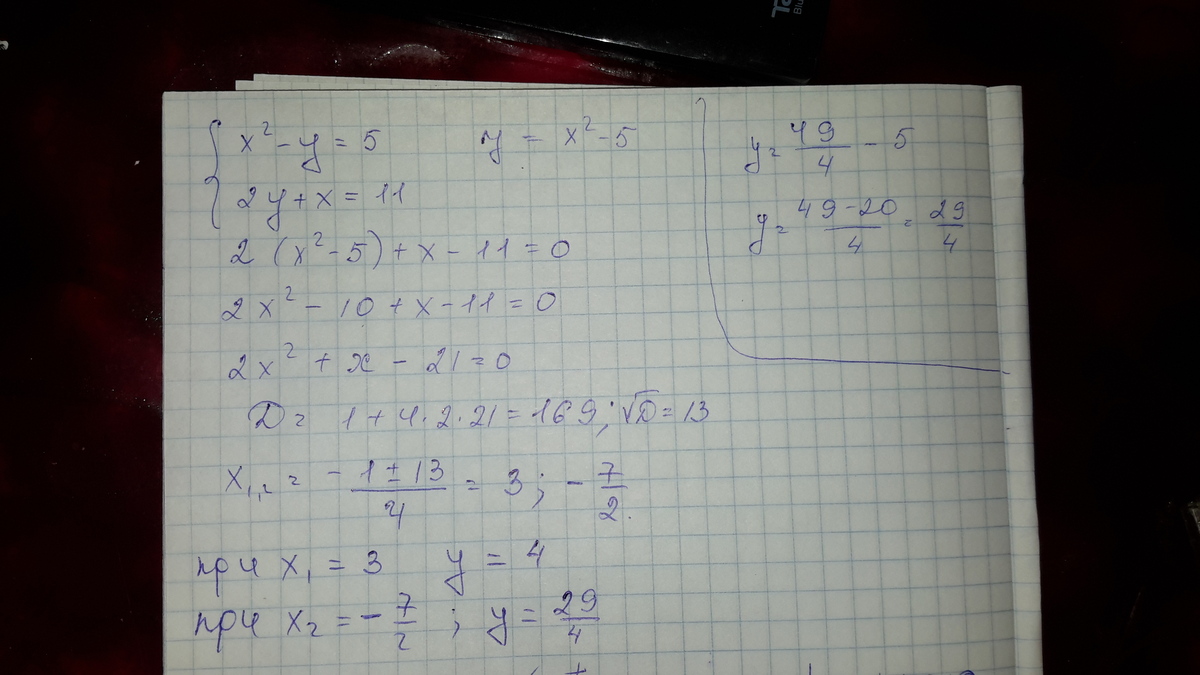 x² - y = 5 y = x² - 5
2y + x = 11
2 (x² - 5) + x - 11 = 0
2x² - 10 + x - 11 = 0
2x² + x - 21 = 0
D = 1 + 4 · 2 · 21 = 169; √D = 13
x₁,₂ = -1 ± 13 / 4 = 3; - 7/2.
при x₁ = 3 y = 4
при x₂ = - 7/2 ; y = 29/4
y = 49/4 - 5
y = 49 - 20 / 4 = 29/4